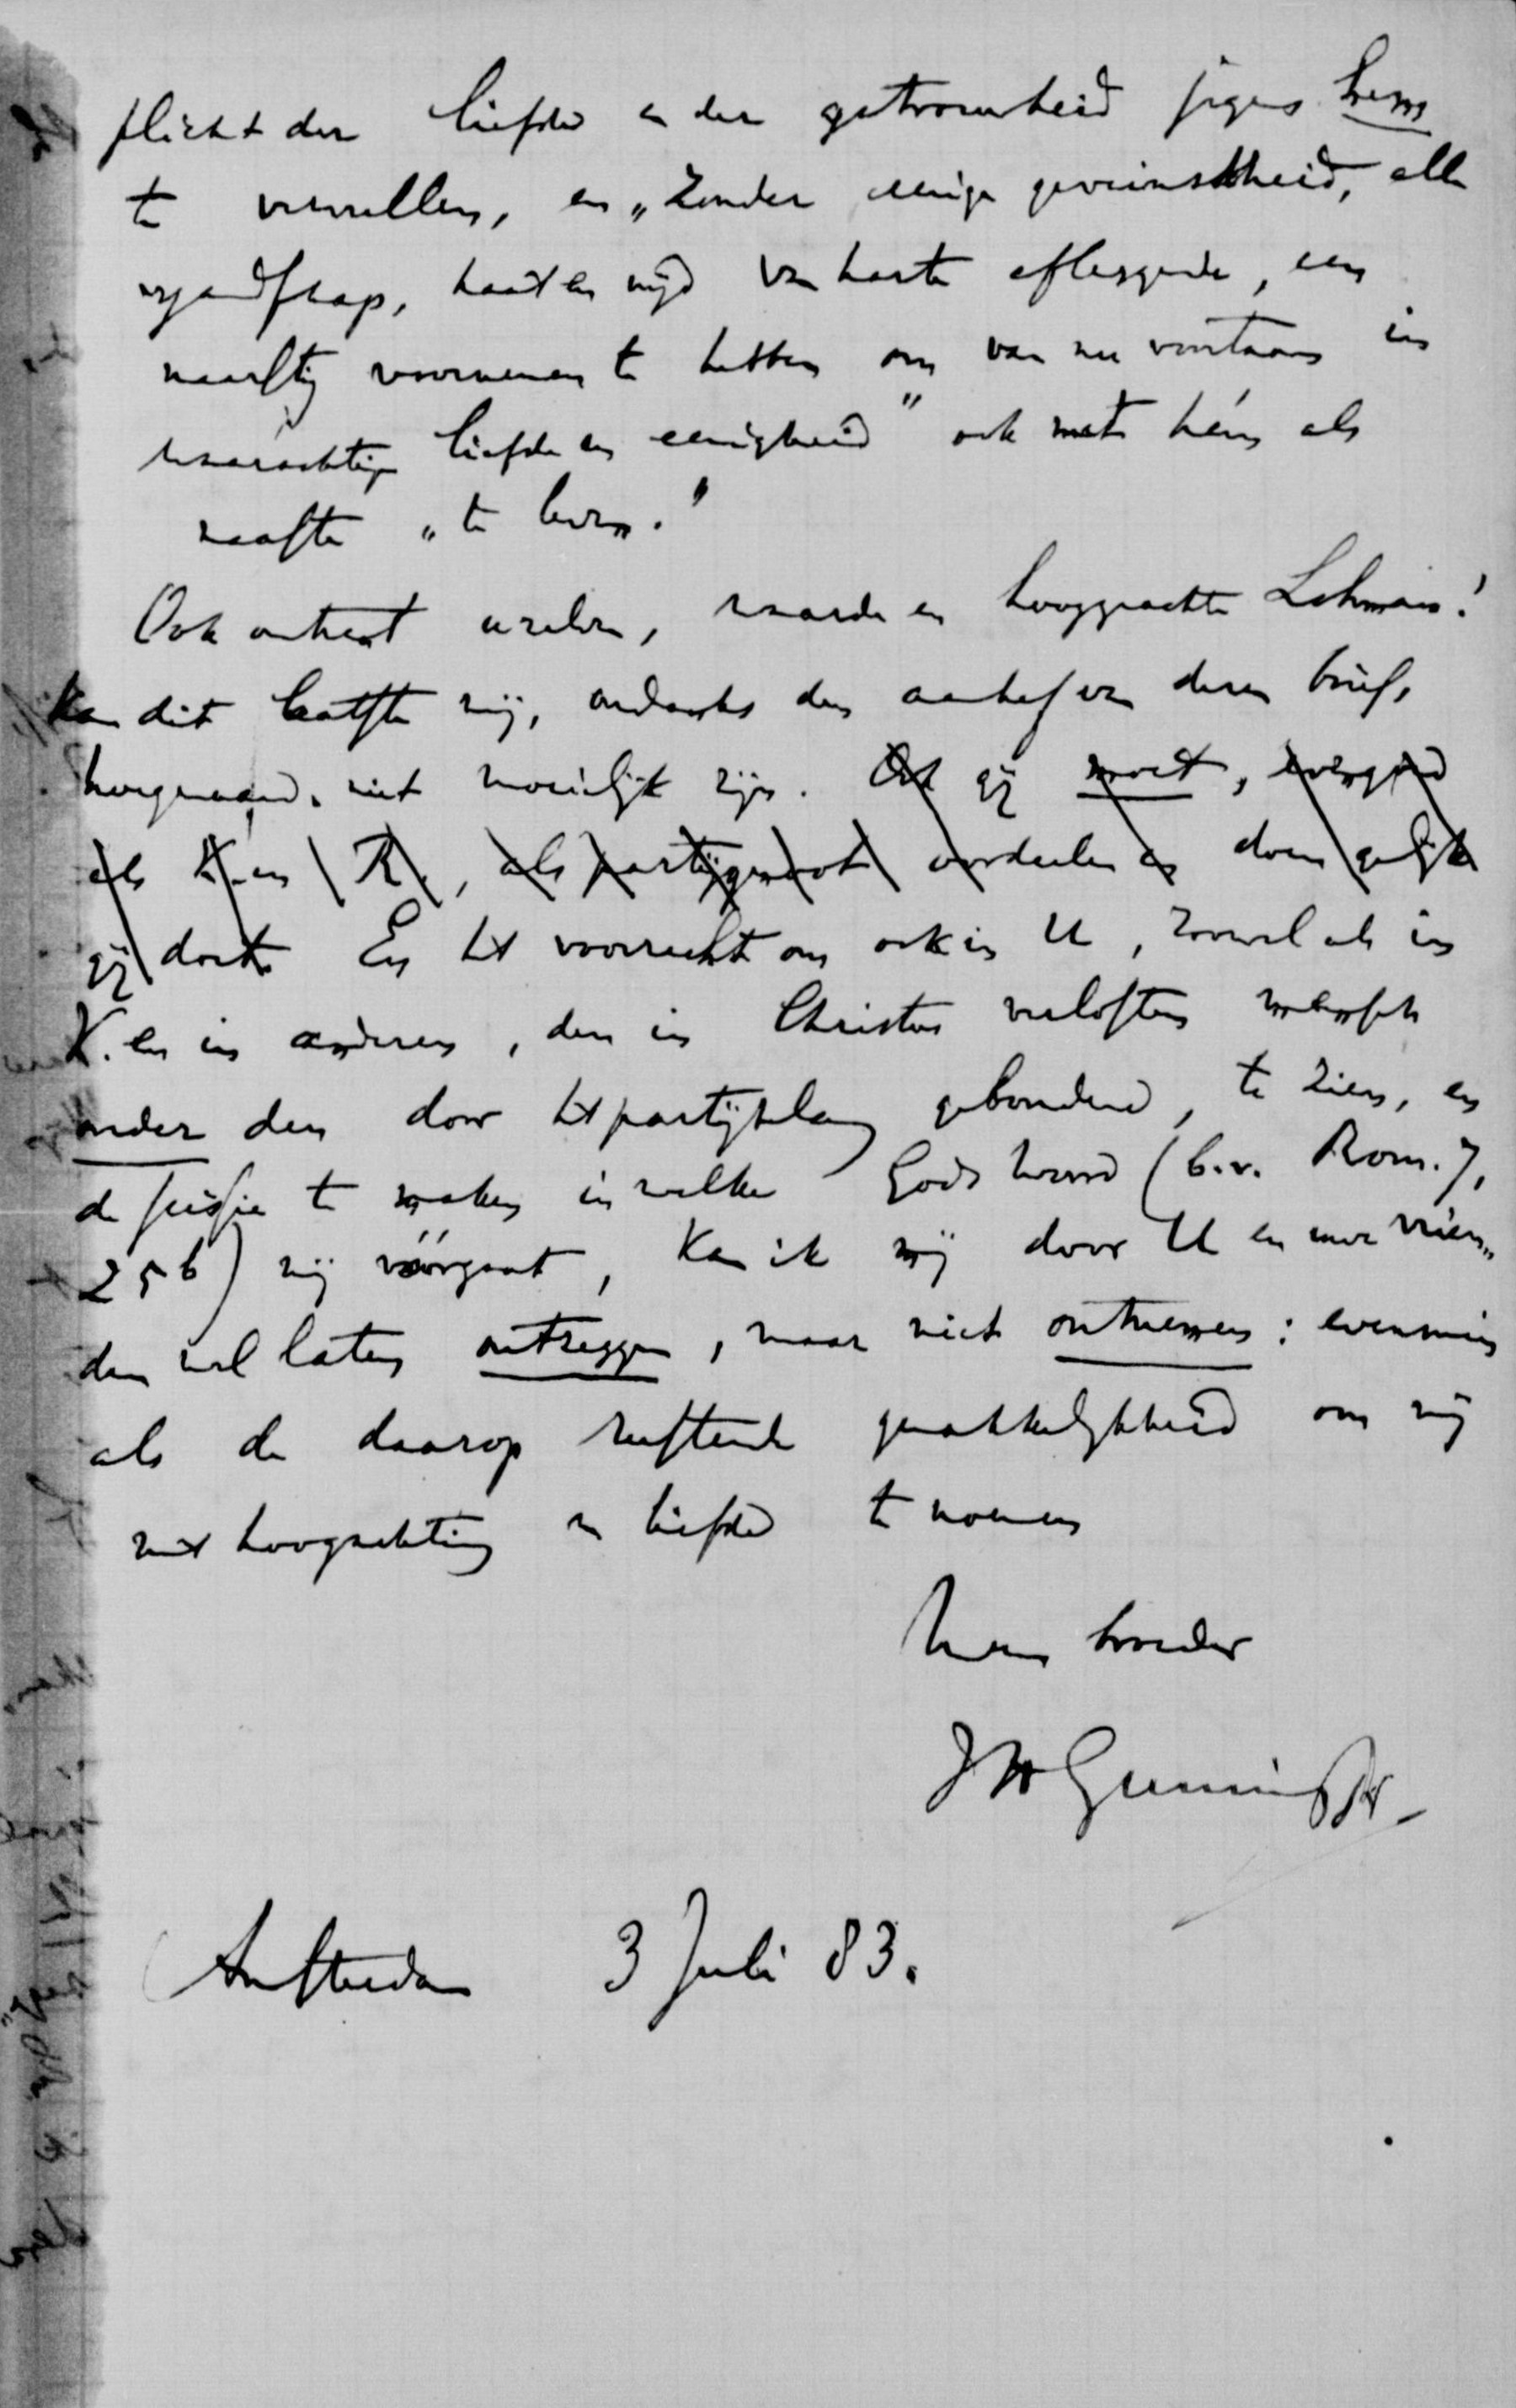 plicht der liefde en der getrouwheid jegens hem
te vervullen, en „zonder eenige geveinsdheid, alle
vijandschap, haat en nijd van harte afleggende, een
naarstig voornemen te hebben om van nu voortaan in
waarachtige liefde en eenigheid" ook met hém als
naaste „te leven."
Ook omtrent uzelven, waarde en hooggeachte Lohman!
kan dit laatste mij, ondanks den aanhef van dezen brief,
niet moeielijk zijn. Ook gij moet, evengoed
als K. en R., als partijgenoot oordeelen en doen gelijk
gij doet. En het voorrecht om ook in U, zoowel als in
K. en in anderen, den in Christus verlosten mensch
onder den door het partijbelang gebondene, te zien, en
de scissie te maken in welke Gods Woord (b.v. Rom. 7,
25b) mij vóórgaat, kan ik mij door U en uwe vrien„
den wel laten ontzeggen, maar niet ontnemen: evenmin
als de daarop rustende gemakkelijkheid om mij
met hoogachting en liefde te noemen
Uwen broeder
JH Gunning Jr.
Amsterdam 3 Juli 83.